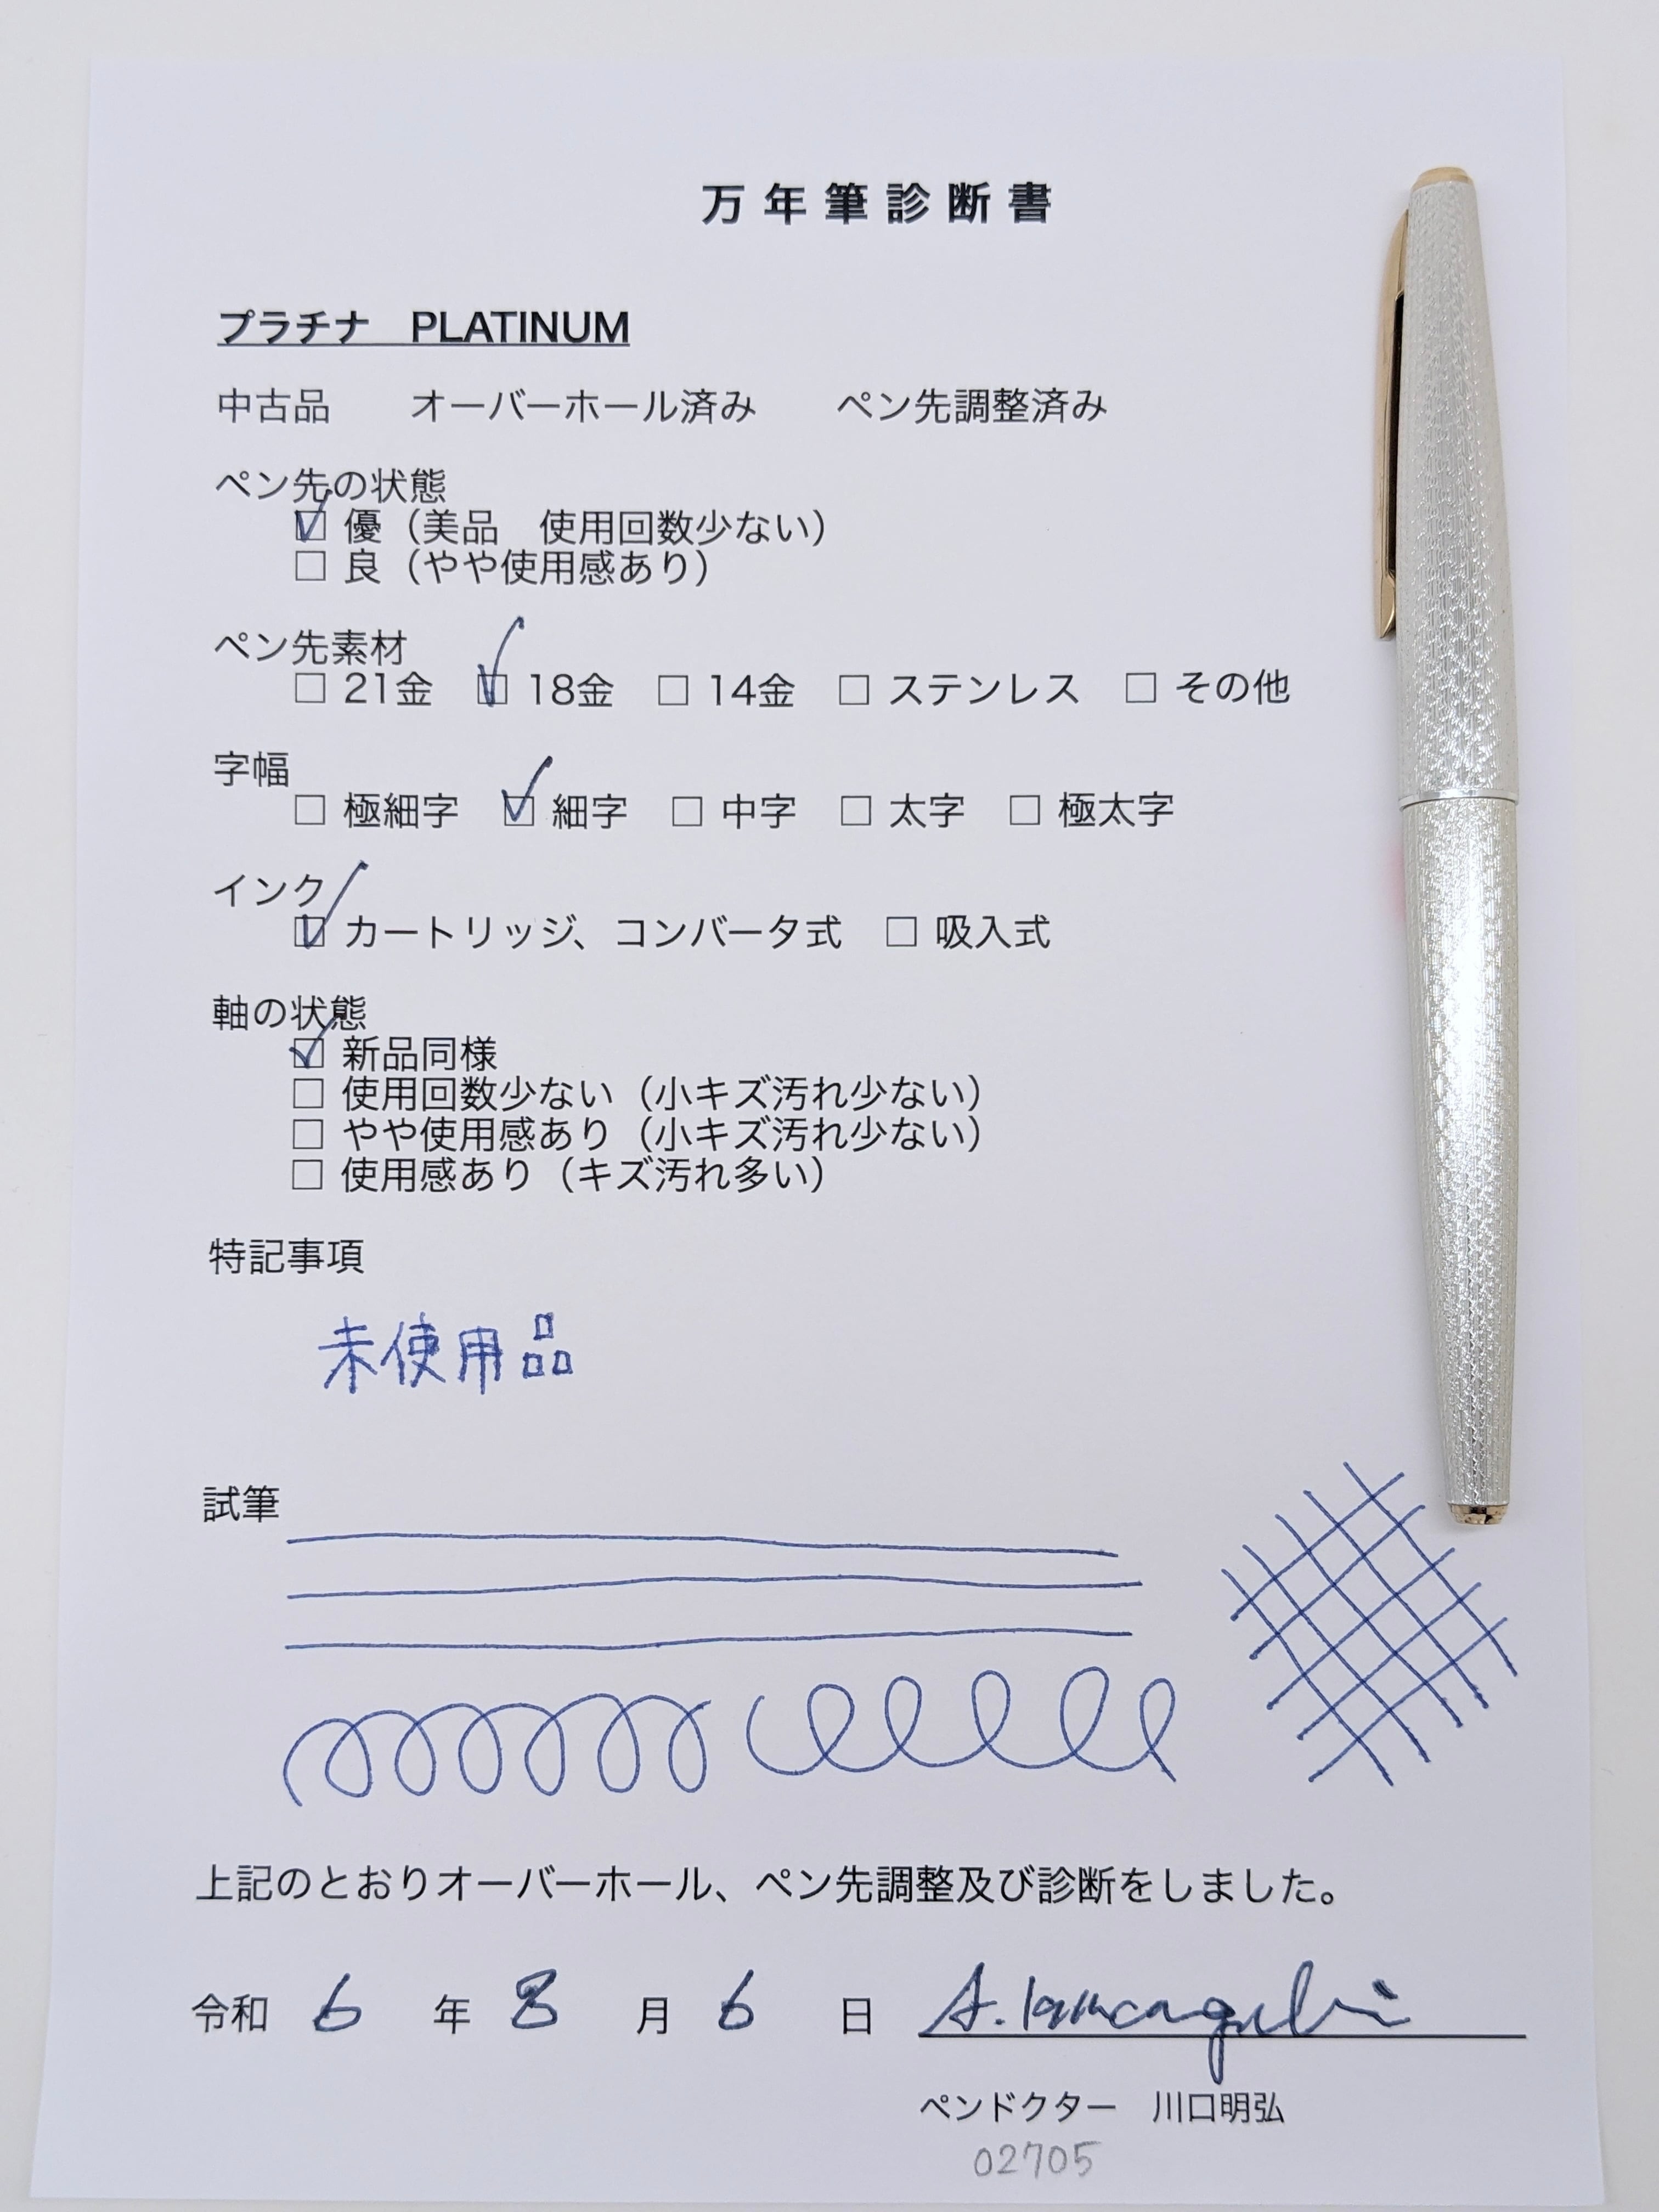 万年筆診断書
プラチナ　PLATINUM
中古品　　オーバーホール済み　　ペン先調整済み
ペン先の状態
☑ 優（美品　使用回数少ない）
□ 良（やや使用感あり）
ペン先素材
□ 21金　☑ 18金　□ 14金　□ ステンレス　□ その他
字幅
□ 極細字　☑ 細字　□ 中字　□ 太字　□ 極太字
インク
☑ カートリッジ、コンバータ式　□ 吸入式
軸の状態
☑ 新品同様
□ 使用回数少ない（小キズ汚れ少ない）
□ やや使用感あり（小キズ汚れ少ない）
□ 使用感あり（キズ汚れ多い）
特記事項
未使用品
試筆
上記のとおりオーバーホール、ペン先調整及び診断をしました。
令和 6 年 8 月 6 日
ペンドクター　川口明弘
02705